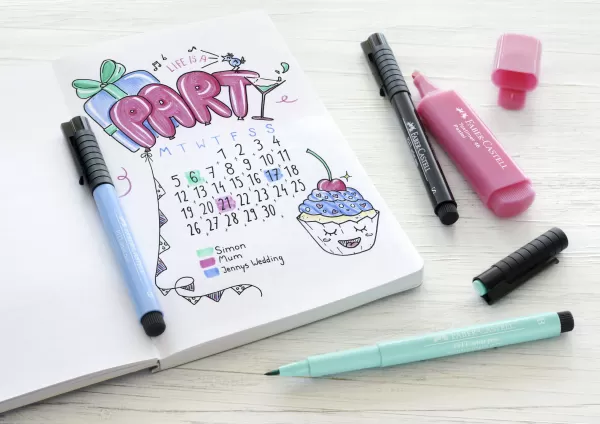 LIFE IS A
PART
M T W T F S S
1 2 3 4
5 6 7 8 9 10 11
12 13 14 15 16 17 18
19 20 21 22 23 24 25
26 27 28 29 30
Simon
Mum
Jennys Wedding
FABER-CASTELL
S
FABER-CASTELL
Textliner 48
Pastel
FABER-CASTELL
B